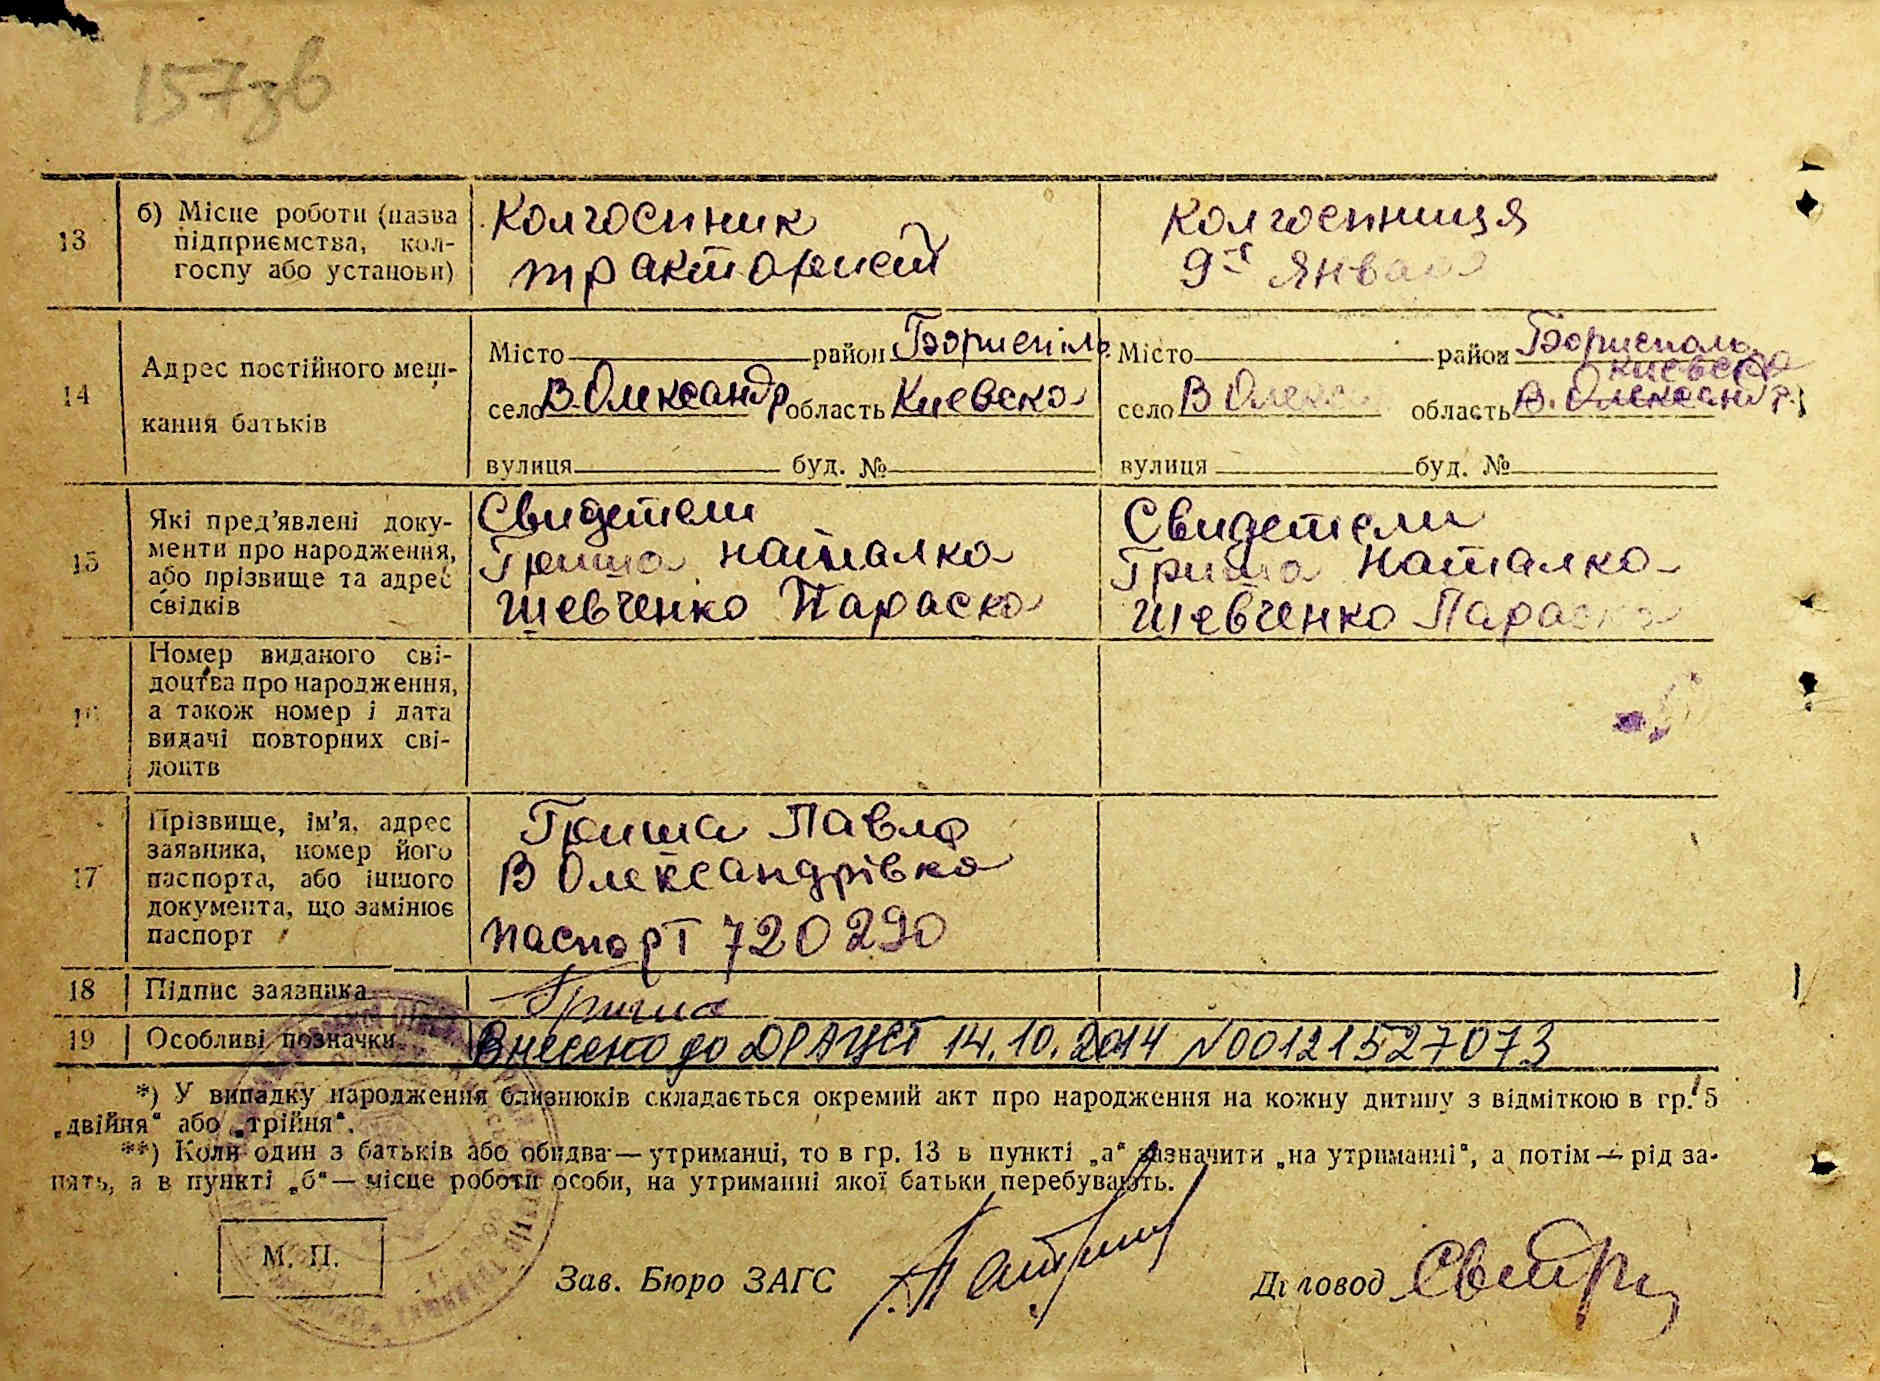 157зв
13
б) Місце роботи (назва
підприємства, кол-
госпу або установи)
Колгоспник
тракторист
Колгоспниця
9-г Января
14
Адрес постійного меш-
кання батьків
Місто район Бориспіль
село В Олександр область Киевско
вулиця буд. №
Місто район Борисполь
Киевско
село В Олекс область В. Олександр
вулиця буд. №
15
Які пред'явлені доку-
менти про народження,
або прізвище та адрес
свідків
Свидетели
Гриша Наталка
Шевченко Параска
Свидетели
Гриша Наталка
Шевченко Параска
16
Номер виданого сві-
доцтва про народження,
а також номер і дата
видачі повторних сві-
доцтв
17
Прізвище, ім'я, адрес
заявника, номер його
паспорта, або іншого
документа, що замінює
паспорт
Гриша Павло
В Олександрівка
паспорт 720290
18
Підпис заявника
Гриша
19
Особливі позначки
Внесено до ДРАЦСГ 14.10.2014 №00121527073
*) У випадку народження близнюків складається окремий акт про народження на кожну дитину з відміткою в гр. 5
„двійня" або „трійня".
**) Коли один з батьків або обидва — утриманці, то в гр. 13 в пункті „а" зазначити „на утриманні", а потім — рід за-
нять, а в пункті „б" — місце роботи особи, на утриманні якої батьки перебувають.
М. П.
Зав. Бюро ЗАГС
Діловод